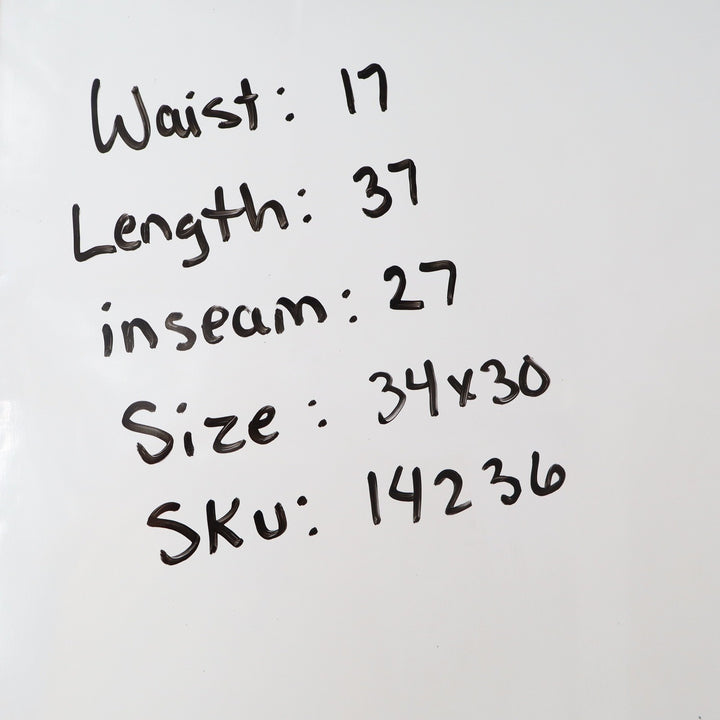 Waist: 17
Length: 37
inseam: 27
Size: 34x30
SKU: 14236